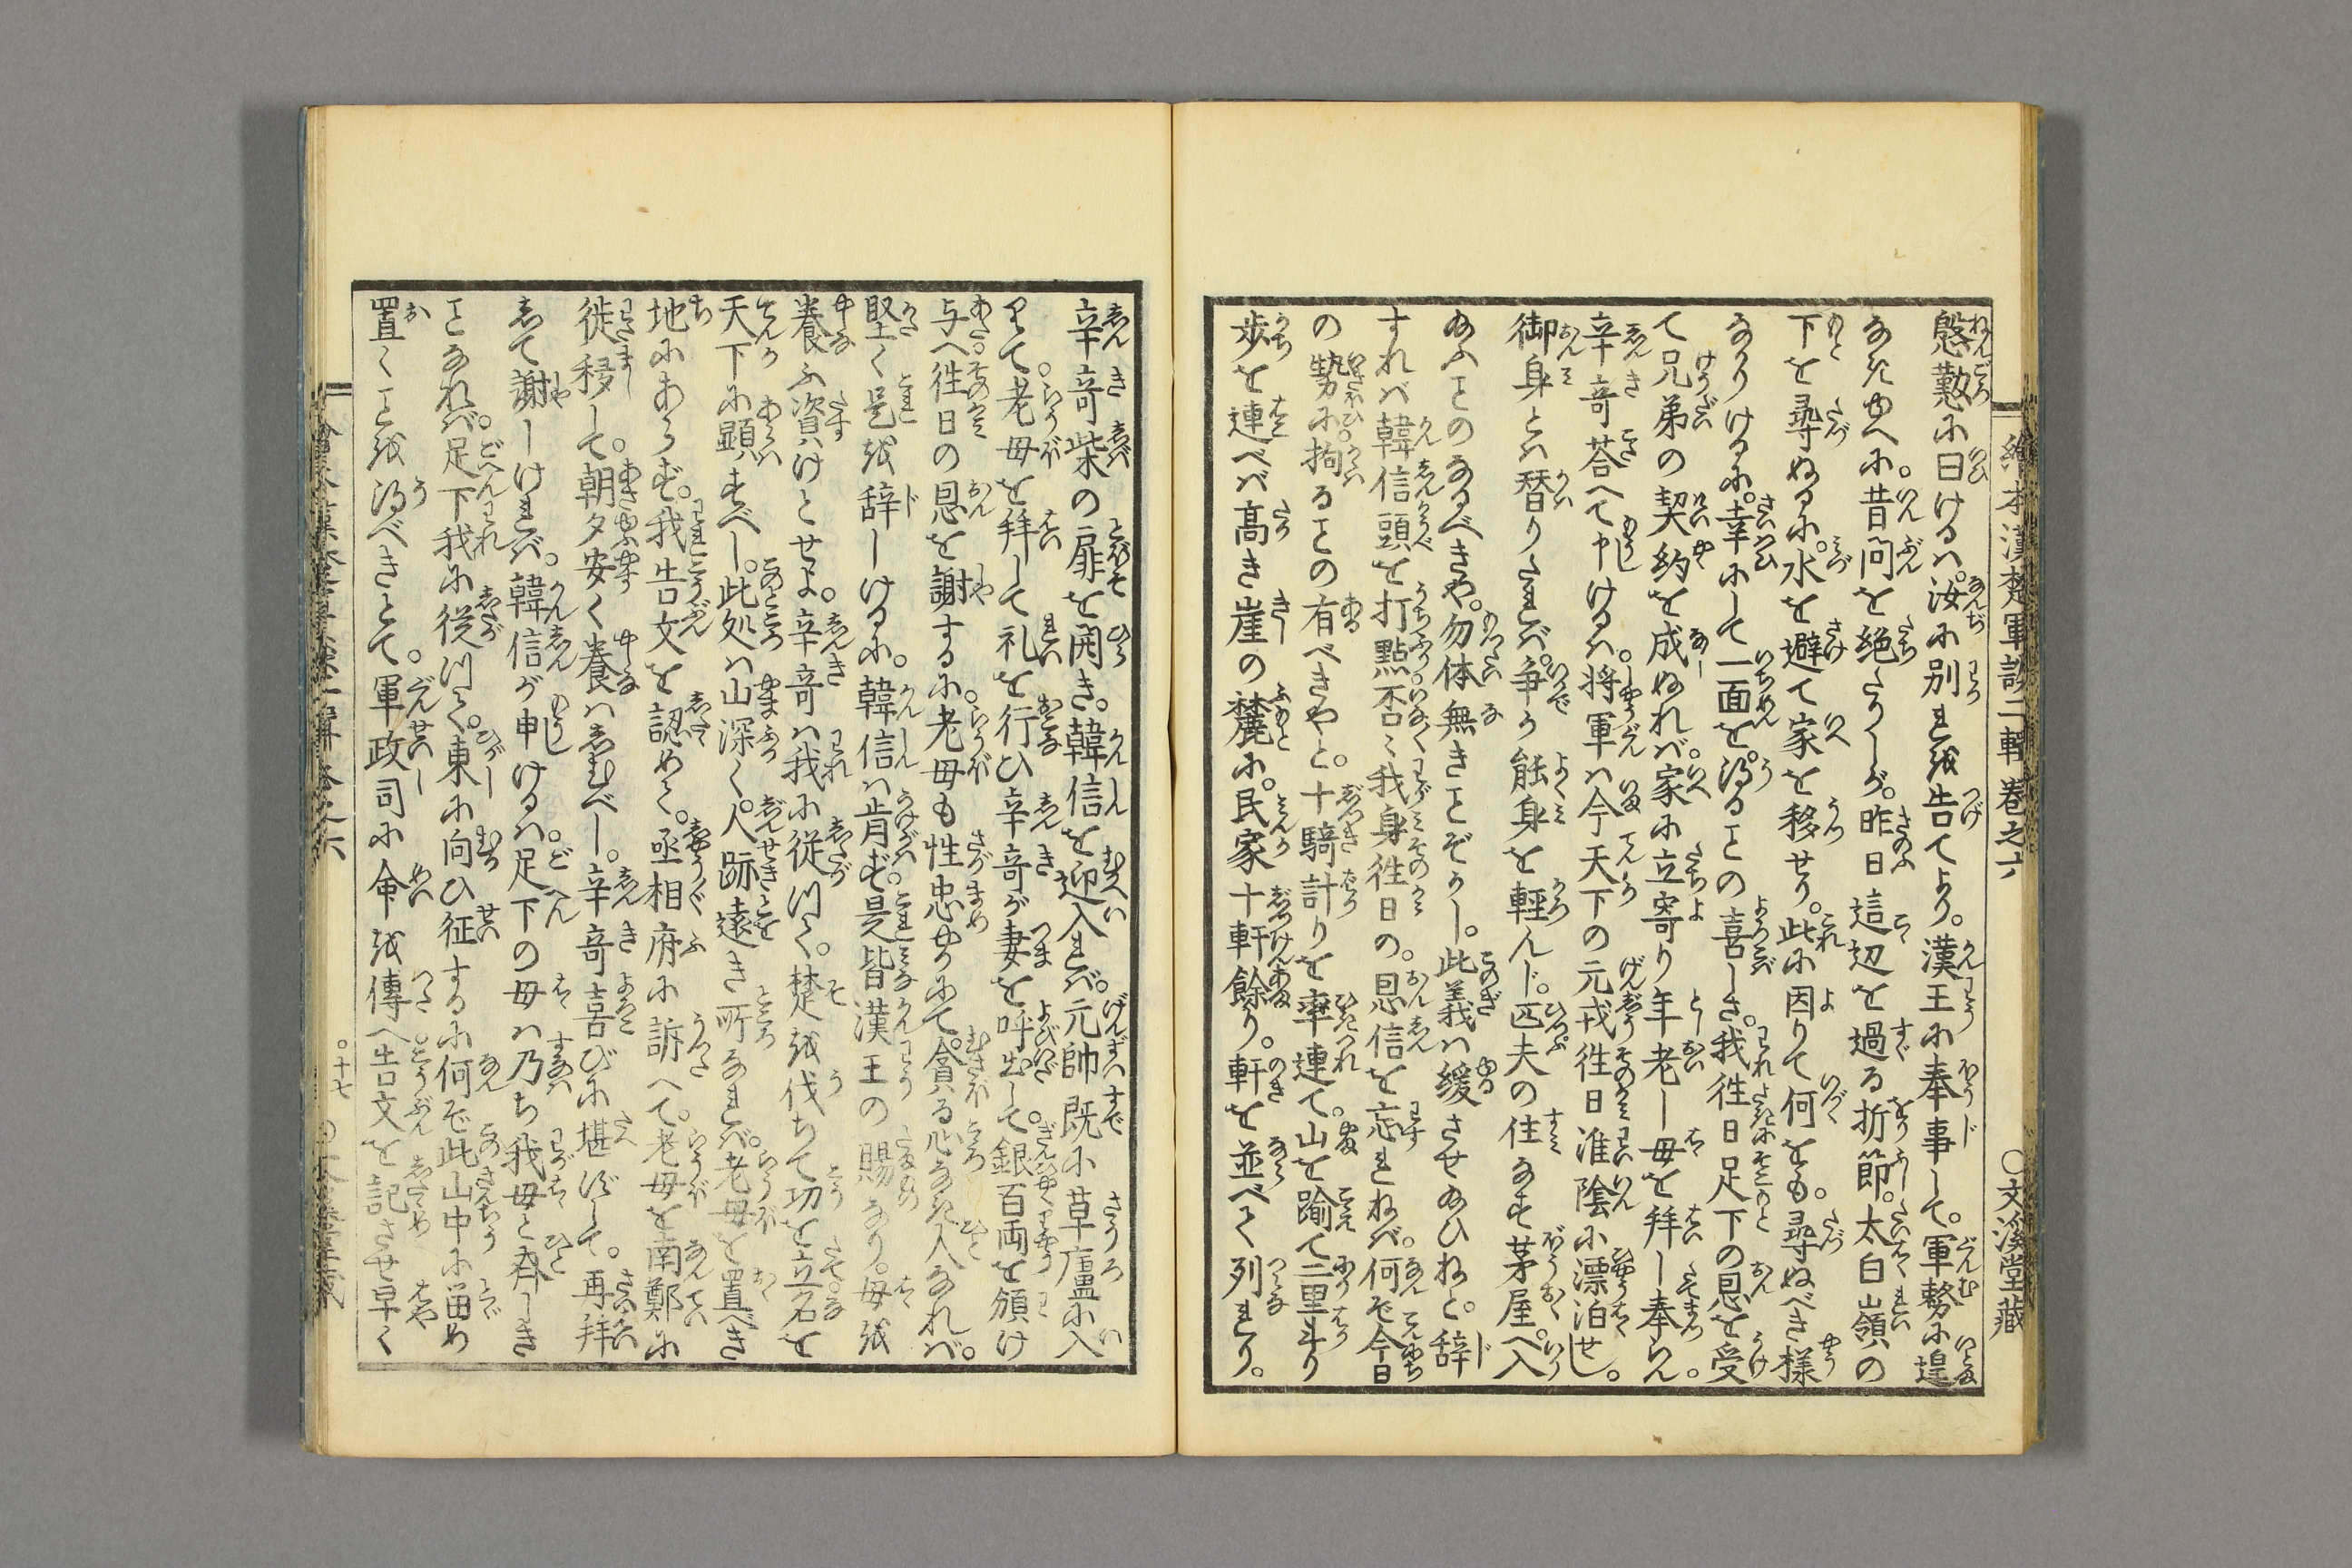 繪本漢楚軍談二輯巻之六　○文溪堂藏
慇懃に曰けるハ。汝に別れを告てより。漢王に奉事して。軍務に遑
なきゆへに。昔問を絶たりしが。昨日這辺を過る折節。太白嶺の
下を尋ぬるに。水を避て家を移せり。此に因りて何をも。尋ぬべき様
なかりけるに。幸にして一面を。得ることの喜しさ。我徃日足下の恩を受
て兄弟の契約を成ぬれバ。家に立寄り年老し母を拝し奉らん。
辛竒荅へて申けるハ。将軍ハ今天下の元戎徃日淮陰に漂泊せし。
御身とハ替りたれバ。争か能身を軽んじ。匹夫の住なす茅屋へ。入
給ふことのなるべきや。勿体無きことぞかし。此義ハ緩させ給ひねと。辞
すれバ韓信頭を打點。否く我身徃日の。恩信を忘れねバ。何ぞ今日
の勢に拘ることの有べきやと。十騎計りを率連て。山を踰て二里斗り
歩を連べバ高き崖の麓に。民家十軒餘り。軒を並べて列れり。
辛竒柴の扉を開き。韓信を迎入れバ。元帥既に草廬に入
りて。老母を拜して礼を行ひ辛竒が妻を呼出して。銀百両を頒け
与へ徃日の恩を謝するに。老母も性忠やかにて。貪る心なき人なれバ。
堅く是を辞しけるに。韓信ハ肯ず。是皆漢王の賜なり。母を
養ふ資けとせよ。辛竒ハ我に従つて。楚を伐ちて功を立名を
天下に顕すべし。此処ハ山深く。人跡遠き所なれバ。老母を置べき
地にあらず。我告文を認めて。丞相府に訴へて。老母を南鄭に
徙移して。朝夕安く養ハしむべし。辛竒喜びに堪ずして。再拜
して謝しけれバ。韓信が申けるハ。足下の母ハ乃ち我母と斉しき
ことなれバ。足下我に従つて。東に向ひ征するに何ぞ此山中に畄め
置くことを得べきとて。軍政司に命を傳へ告文を記させ早く
○十七